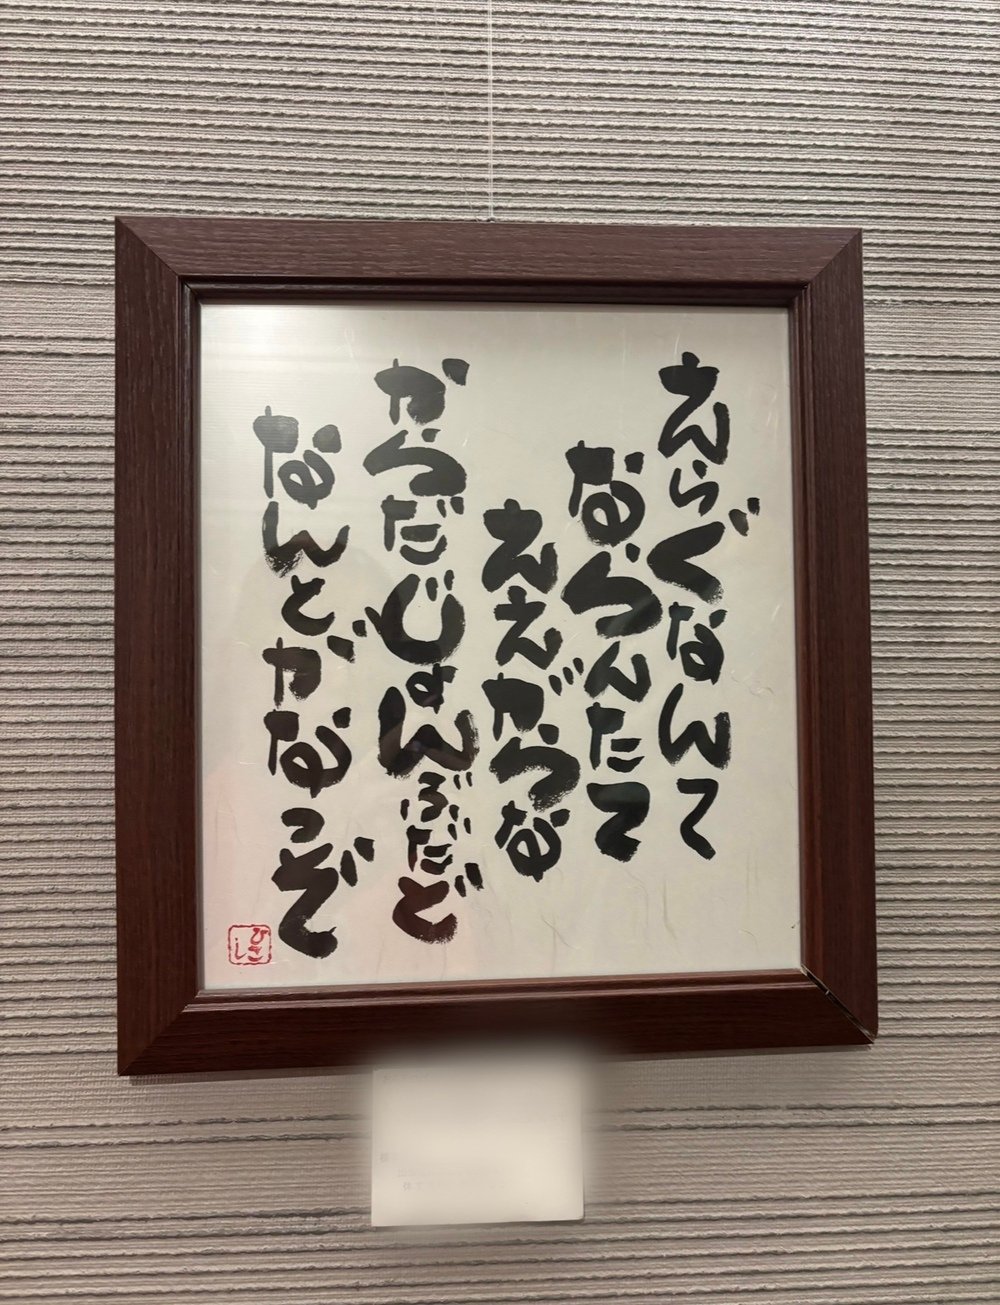 えらぐなんて
ならんたて
ええがらな
からだじょんぶだど
なんとがなっぞ
ひさし